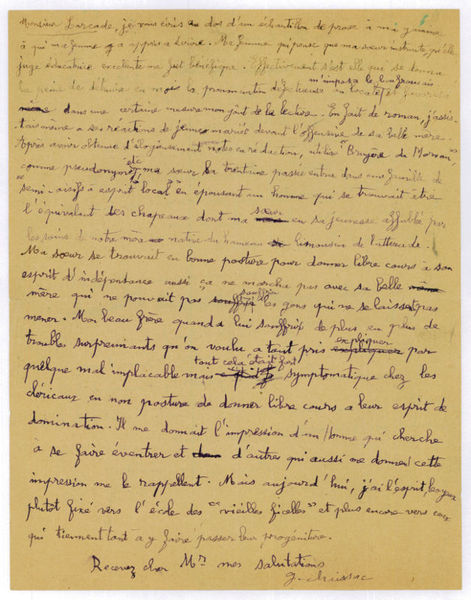 Monsieur Larcade, je vous écris au dos d'un échantillon de prose à ma gamine
à qui ma femme a appris à écrire. Ma femme qui pense que ma sœur institutrice qu'elle
juge éducatrice excellente me fut bénéfique. Effectivement c'est elle qui se donna
la peine de détruire en moi la prononciation défectueuse
m'imposa le bon français
dans une certaine mesure mon goût de la lecture. En fait de roman, j'assis-
tai même à ses réactions de jeune mariée devant l'offensive de sa belle mère.
Après avoir obtenu d'élogieuses notes en rédaction, utilisé "Bruyère du Morvan"
comme pseudonyme, ma sœur la trentaine passée entra dans une famille de
semi-oisifs à esprit local en épousant un homme qui se trouvait être
l'équivalent des chapeaux dont ma sœur en sa jeunesse affublée par
les soins de notre mère native du hameau limousin de
Ma sœur se trouvait en bonne posture pour donner libre cours à son
esprit d'indépendance aussi ça ne marcha pas avec sa belle
mère qui ne pouvait pas les gens qui ne se laissent pas
mener. Mon beau frère quand à lui souffrit de plus en plus de
troubles surprenants qu'on voulu a tant pris expliquer par
quelque mal implacable mais tout cela était fort symptomatique chez les
cléricaux en non posture de donner libre cours a leur esprit de
domination. Il me donnait l'impression d'un homme qui cherche
à se faire éventrer et d'autres qui aussi me donnent cette
impression me le rappellent. Mais aujourd'hui, j'ai l'esprit
plutôt fixé vers l'école des "vieilles ficelles" et plus encore vers ceux
qui tiennent tant a y faire passer leur progéniture.
Recevez cher Mr mes salutations
G. Chaissac